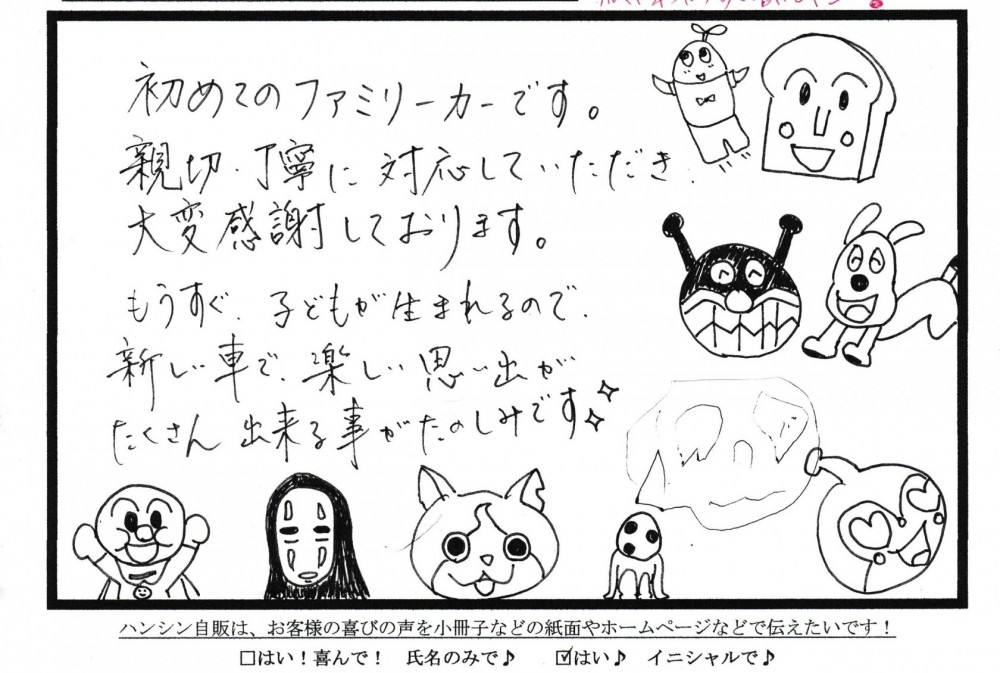 初めてのファミリーカーです。
親切・丁寧に対応していただき、
大変感謝しております。
もうすぐ、子どもが生まれるので、
新しい車で、楽しい思い出が
たくさん出来る事がたのしみです
ハンシン自販は、お客様の喜びの声を小冊子などの紙面やホームページなどで伝えたいです！
□はい！喜んで！　氏名のみで♪　☑はい♪　イニシャルで♪